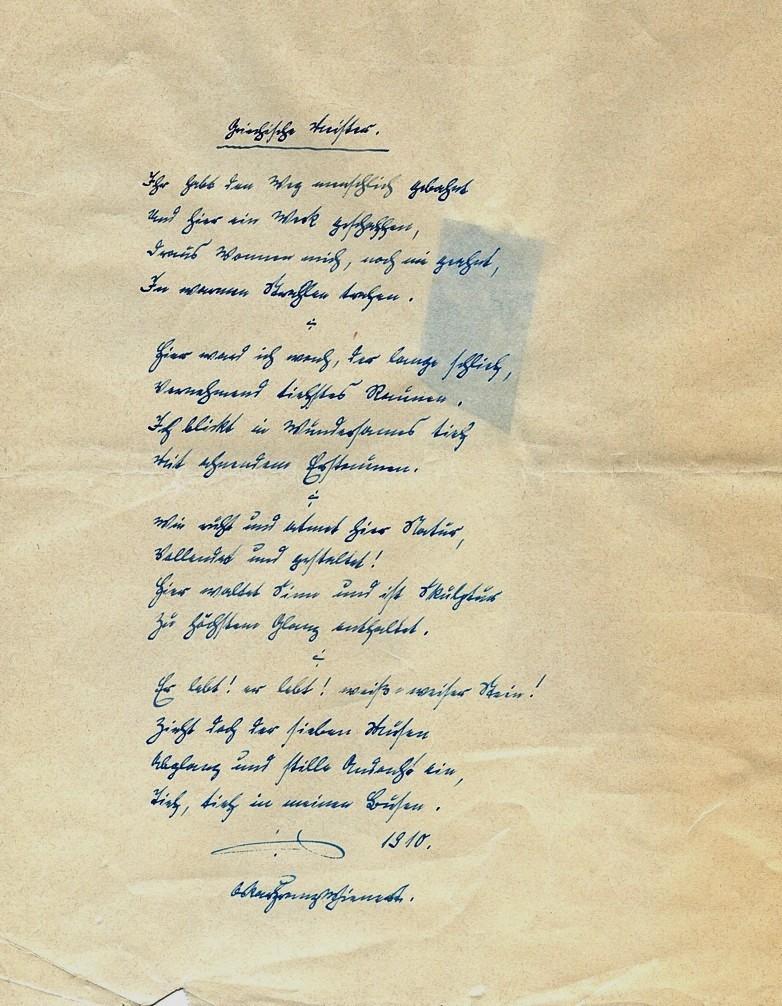 Griechische Meister.
Ihr habt den Weg menschlich gebahnt
Und hier ein Werk geschaffen,
Draus Wonnen mich, noch nie geahnt,
In warmen Strahlen trafen.
Hier ward ich wach, der lange schlief,
Vernehmend tiefstes Raunen.
Ich blickt in Wundersames tief
Mit ahnendem Erstaunen.
Wie ruht und atmet hier Natur,
Vollendet und gestaltet!
Hier waltet Sinn und ist Skulptur
Zu höchstem Glanz entfaltet.
Er lebt! er lebt! weiß-weiser Stein!
Zieht doch der sieben Musen
Abglanz und stille Andacht ein,
Tief, tief in meinen Busen.
1910.
Oskar Franz Wienert.